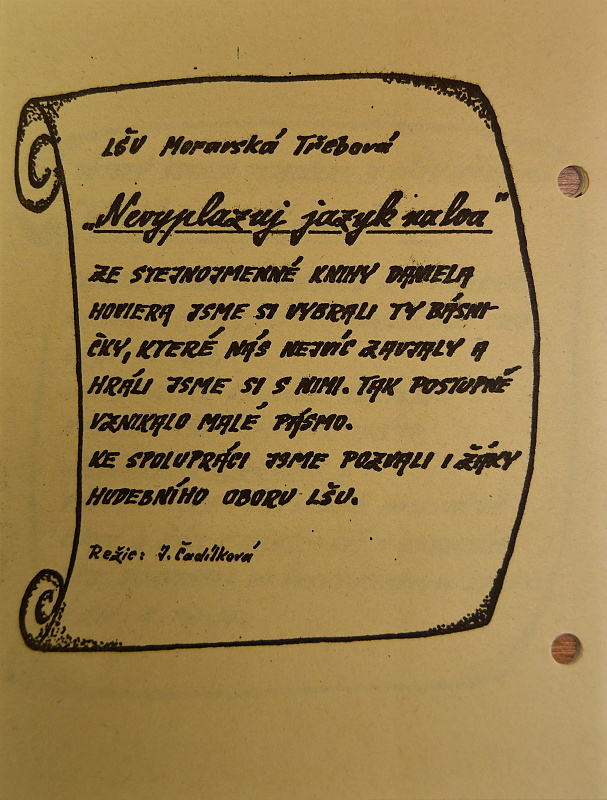 LŠU Moravská Třebová
„Nevyplazuj jazyk na lva"
ZE STEJNOJMENNÉ KNIHY DANIELA
HOVIERA JSME SI VYBRALI TY BÁSNI-
ČKY, KTERÉ NÁS NEJVÍC ZAUJALY A
HRÁLI JSME SI S NIMI. TAK POSTUPNĚ
VZNIKALO MALÉ PÁSMO.
KE SPOLUPRÁCI JSME POZVALI I ŽÁKY
HUDEBNÍHO OBORU LŠU.
Režie: J. Čadílková